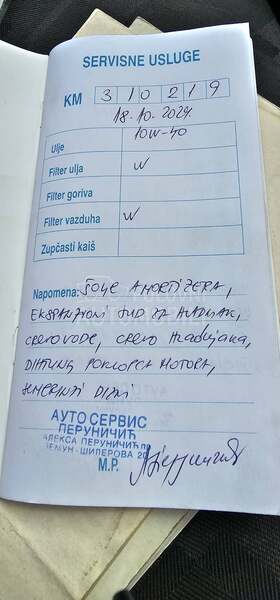 SERVISNE USLUGE
KM 3 1 0 2 1 9
18.10.2024.
Ulje 10W-40
Filter ulja W
Filter goriva
Filter vazduha W
Zupčasti kaiš
Napomena: ŠOLJE AMORTIZERA,
EKSPANZIONI SUD ZA HLADNJAK,
CREVO VODE, CREVO HLADNJAKA,
DIHTUNG POKLOPCA MOTORA,
SEMERINZI DIZNI
АУТО СЕРВИС
ПЕРУНИЧИЋ
АЛЕКСА ПЕРУНИЧИЋ ПР
ЗЕМУН - ШИПЕРОВА 20
M.P.